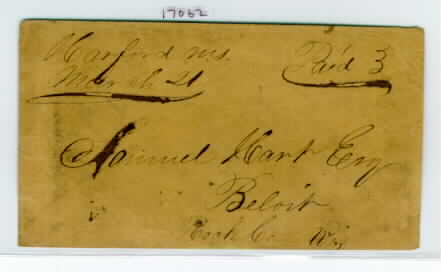 17062
Harford Ms.
March 21
Paid 3
Samuel Hart Esq
Beloit
Rock Co. Wis